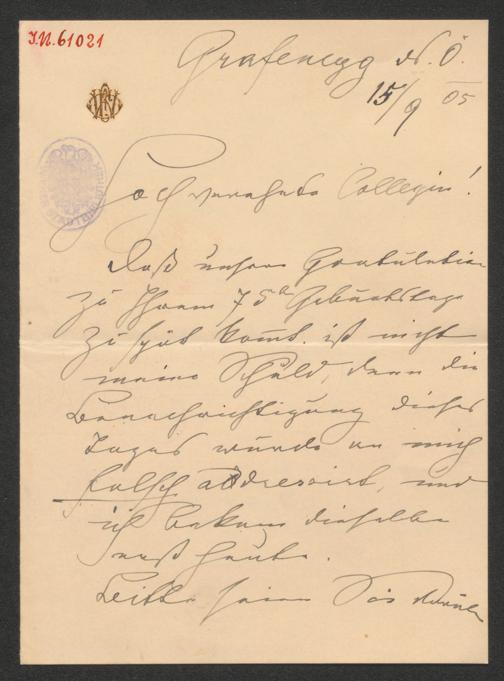 I.N. 61021
Grafenegg N.Ö.
15/9 05
Hochverehrte Collegin!
Daß unsere Gratulation
zu Ihrem 75t Geburtstage
zu spät kommt ist nicht
meine Schuld, denn die
Benachrichtigung dieses
Tages wurde an mich
falsch addressirt, und
ich bekam dieselbe
erst heute.
Bitte seien Sie